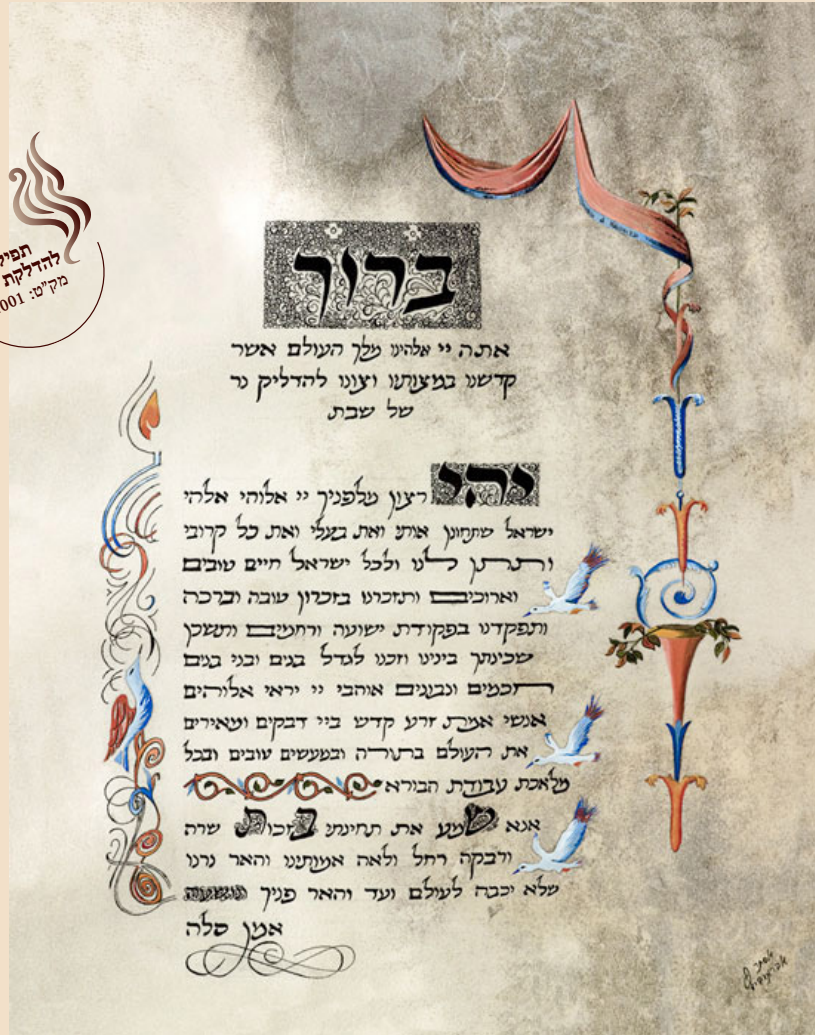 להדלקת
מק"ט: 001
ברוך
אתה יי אלהינו מלך העולם אשר
קדשנו במצותיו וצונו להדליק נר
של שבת
יהי רצון מלפניך יי אלוהי אלהי
ישראל שתחונן אותי ואת בעלי ואת כל קרובי
ותתן לנו ולכל ישראל חיים טובים
וארוכים ותזכרנו בזכרון טובה וברכה
ותפקדנו בפקודת ישועה ורחמים ותשכן
שכינתך בינינו וזכנו לגדל בנים ובני בנים
חכמים ונבונים אוהבי יי יראי אלוהים
אנשי אמת זרע קדש ביי דבקים ומאירים
את העולם בתורה ובמעשים טובים ובכל
מלאכת עבודת הבורא
אנא שמע את תחינתי בזכות שרה
ורבקה רחל ולאה אמותינו והאר נרנו
שלא יכבה לעולם ועד והאר פניך ונושעה
אמן סלה